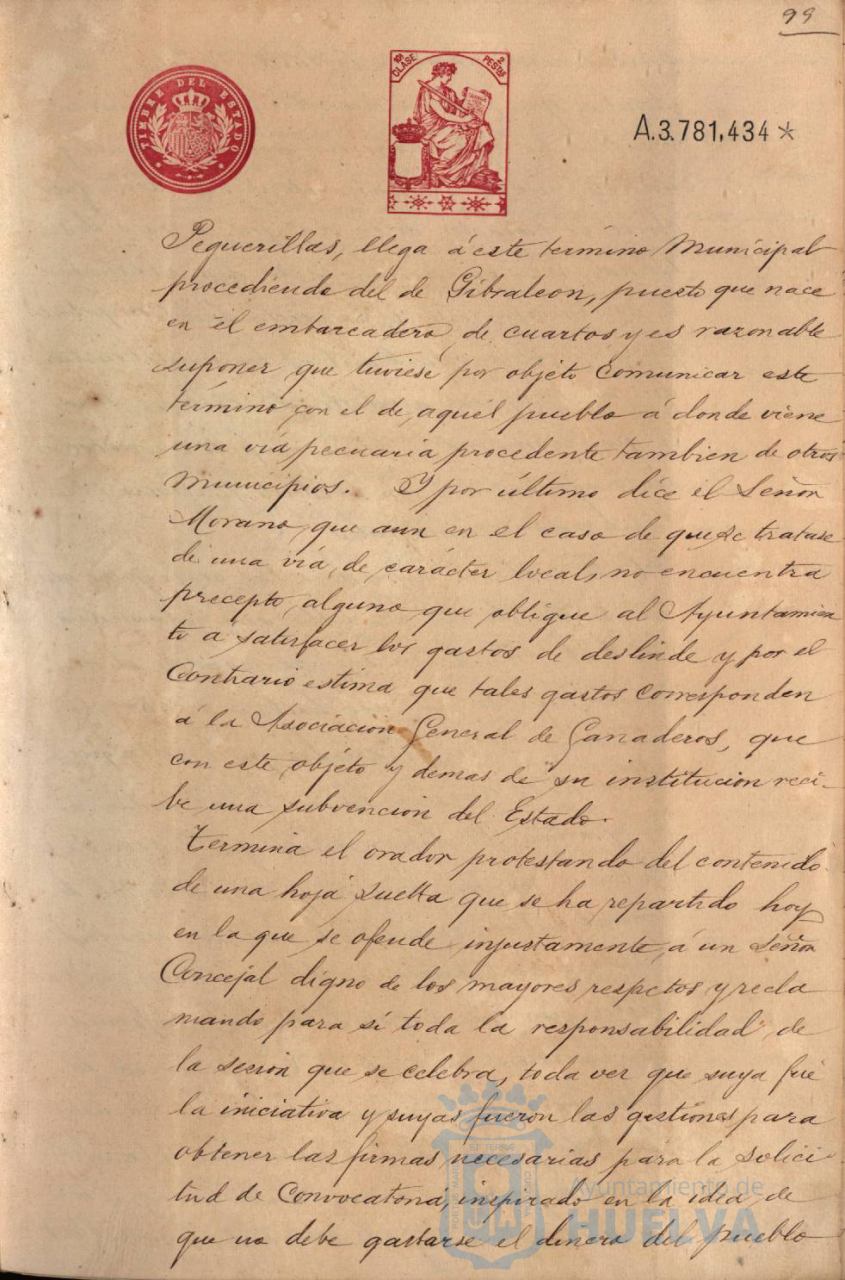 99
TIMBRE DEL ESTADO
10ª CLASE
2 PESTAS
A.3.781,434*
Peguerillas, llega á este término Municipal
procediendo del de Gibraleon, puesto que nace
en el embarcadero de cuartos y es razonable
suponer que tuviese por objeto comunicar este
término con el de aquel pueblo á donde viene
una via pecuaria procedente tambien de otros
Municipios. Y por último dice el Señor
Morano que aun en el caso de que se tratase
de una via de carácter local, no encuentra
precepto alguno que obligue al Ayuntamien
to a satisfacer los gastos de deslinde y por el
Contrario estima que tales gastos corresponden
á la Asociacion General de Ganaderos, que
con este objéto y demas de su institucion reci-
be una subvencion del Estado.
Termina el orador protestando del contenido
de una hoja suelta que se ha repartido hoy
en la que se ofende injustamente á un Señor
Concejal digno de los mayores respetos y recla
mando para sí toda la responsabilidad de
la sesion que se celebra, toda vez que suya fué
la iniciativa y suyas fueron las gestiones para
obtener las firmas necesarias para la solici-
tud de Convocatoria, inspirado en la idea de
que no debe gastarse el dinero del pueblo
Ayuntamiento de
HUELVA